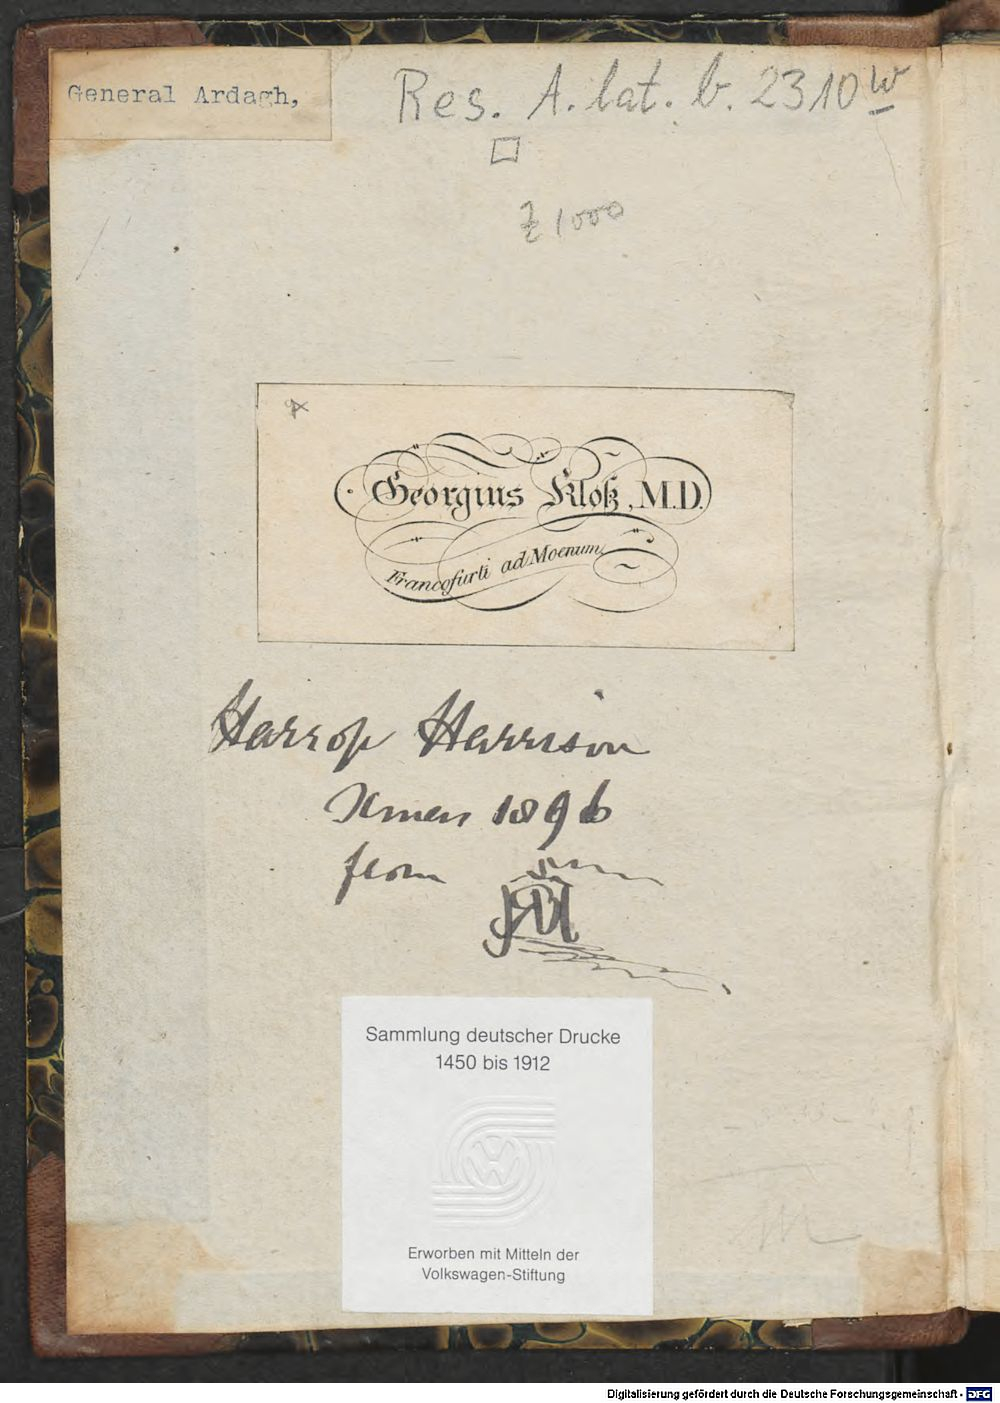 General Ardagh,
Res. A. lat. b. 2310 w
Z 1000
Georgius Kloß, M.D.
Francofurti ad Moenum
Harrop Harrison
Xmas 1896
from
Sammlung deutscher Drucke
1450 bis 1912
Erworben mit Mitteln der
Volkswagen-Stiftung
Digitalisierung gefördert durch die Deutsche Forschungsgemeinschaft - DFG